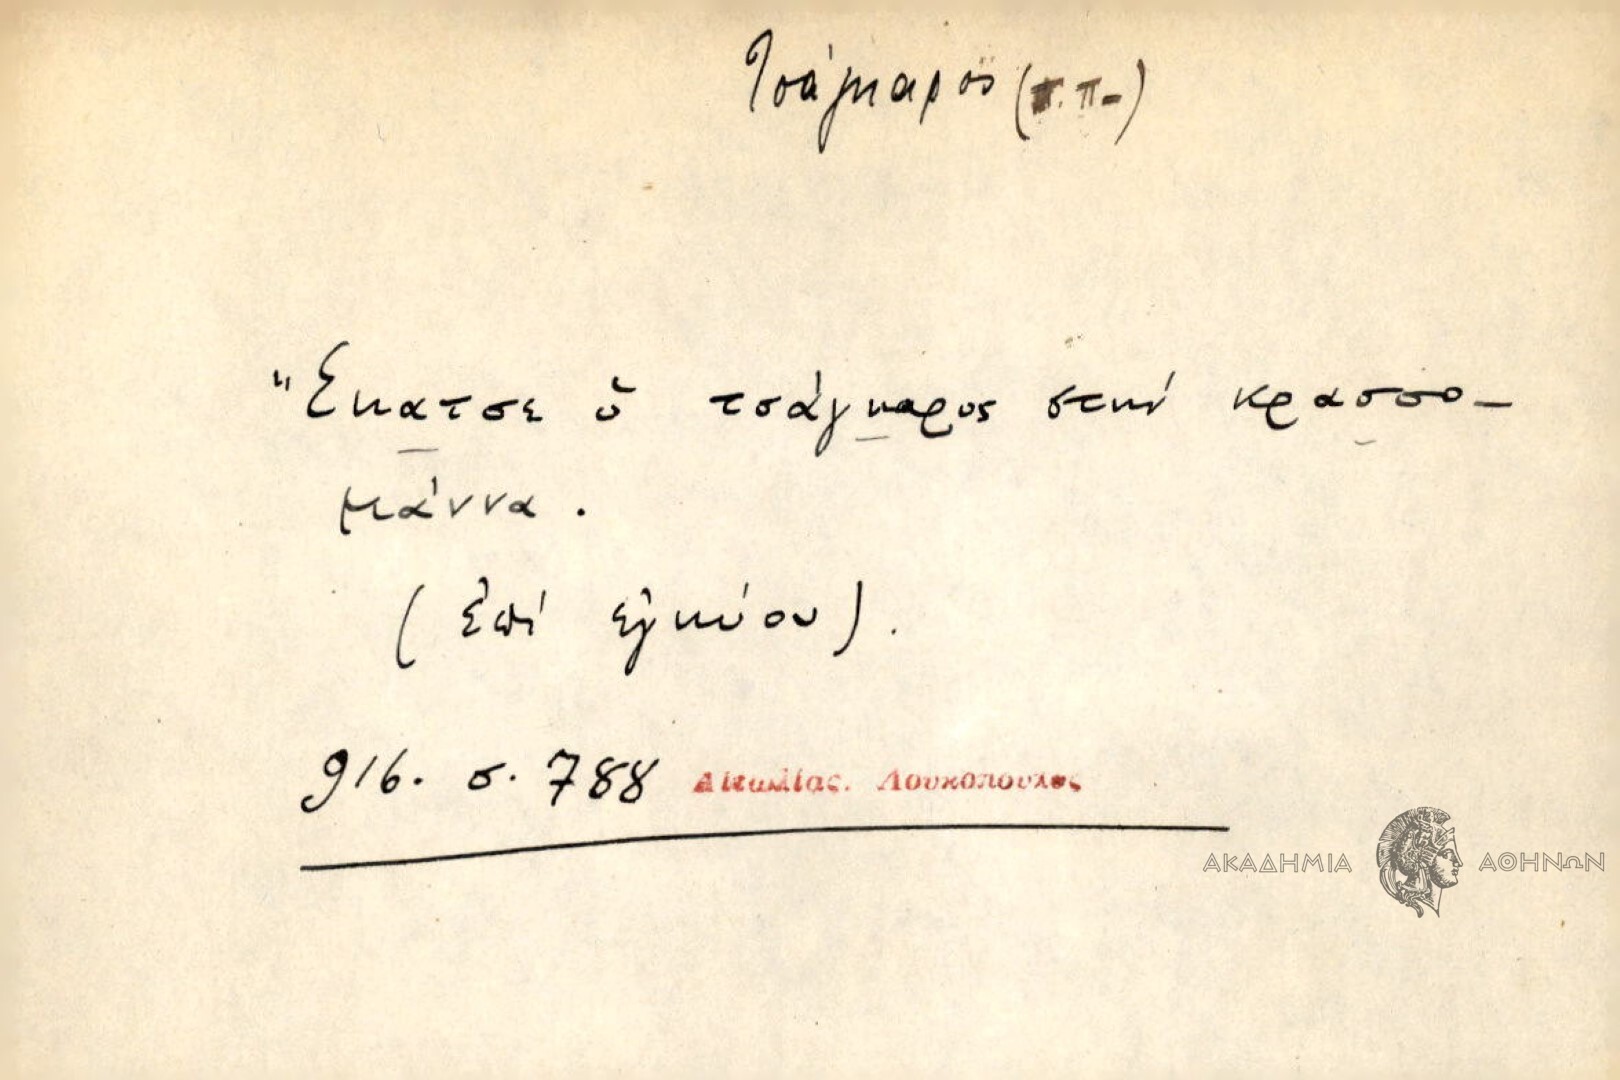 Τσάγκαρος (π.π.)
Ἔκατσε ὁ τσάγκαρος στην κρασσο-
μάννα.
(ἐπί ἐγκύου).
916. σ. 788 Αἰτωλίας. Λουκόπουλος
ΑΚΑΔΗΜΙΑ ΑΘΗΝΩΝ